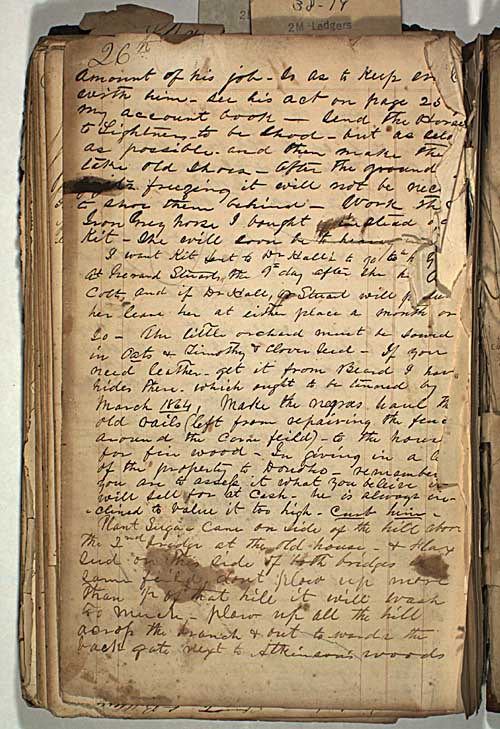 38-14
2M-Ledgers
26th
amount of his job - So as to Keep even
with him - see his act on page 25
my account book - Send the Horses
to Lightners to be Shod - but as seldom
as possible - and then make them
take old Shoes - After the ground
freezing it will not be nece
to shoe them behind - Work the
Iron Grey horse I bought instead of
Kit - She will soon be to
I want Kit sent to Dr Hall's to go to
at Stuart, the 9th day after the
Colt, and if Dr Hall, or Stuart will
her leave her at either place a month or
So - The little orchard must be sowed
in Oats & Timothy & Clover Seed - If you
need leather - get it from Beard I have
hides there - which ought to be tanned by
March 1864 - Make the negros haul the
old rails (left from repairing the fence
around the Corn feild) - to the house
for fire wood - In giving in a
of the property to - remember
you are to assess it what you beleive it
will sell for at Cash - he is always in-
-clined to value it too high - Curb him -
Plant Sugar Cane on side of the hill above
the 2nd bridge at the old house - & flax
Seed on this side of both bridges
Same feild, dont plow up more
than 1/2 of that hill it will wash
to much - plow up all the hill
across the branch & out towards the
back gate next to Atkinson's woods